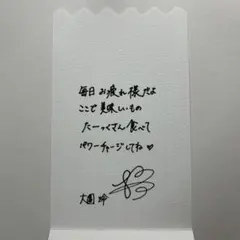 毎日お疲れ様だよ
ここで美味しいもの
たーっくさん食べて
パワーチャージしてね♥
大園 玲